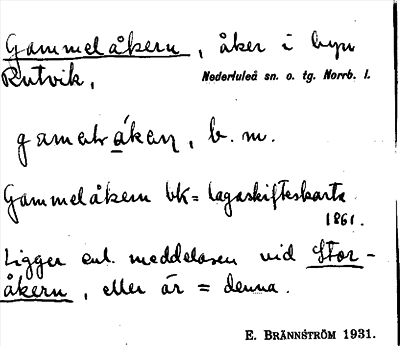 Gammelåkern, åker i byn
Rutvik,
Nederluleå sn. o. tg. Norrb. l.
b. m.
Gammelåkern bk = lagaskifteskarta
1861.
Ligger enl. meddelaren vid Stor-
åkern, eller är = denna.
E. BRÄNNSTRÖM 1931.